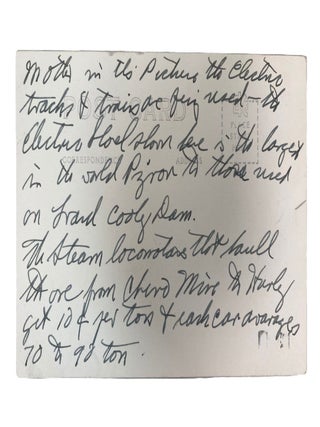 Mother in this Picture the Electric
tracks & trains are being used the
Electric Shovel shown here is the largest
in the world to those used
on Grand Cooly Dam.
The Steam locomotives that haull
the ore from Chino Mine to Hurly
get 10¢ per ton & each car avarages
70 to 90 ton.
POST CARD
CORRESPONDENCE
ADDRESS
PLACE
STAMP
HERE